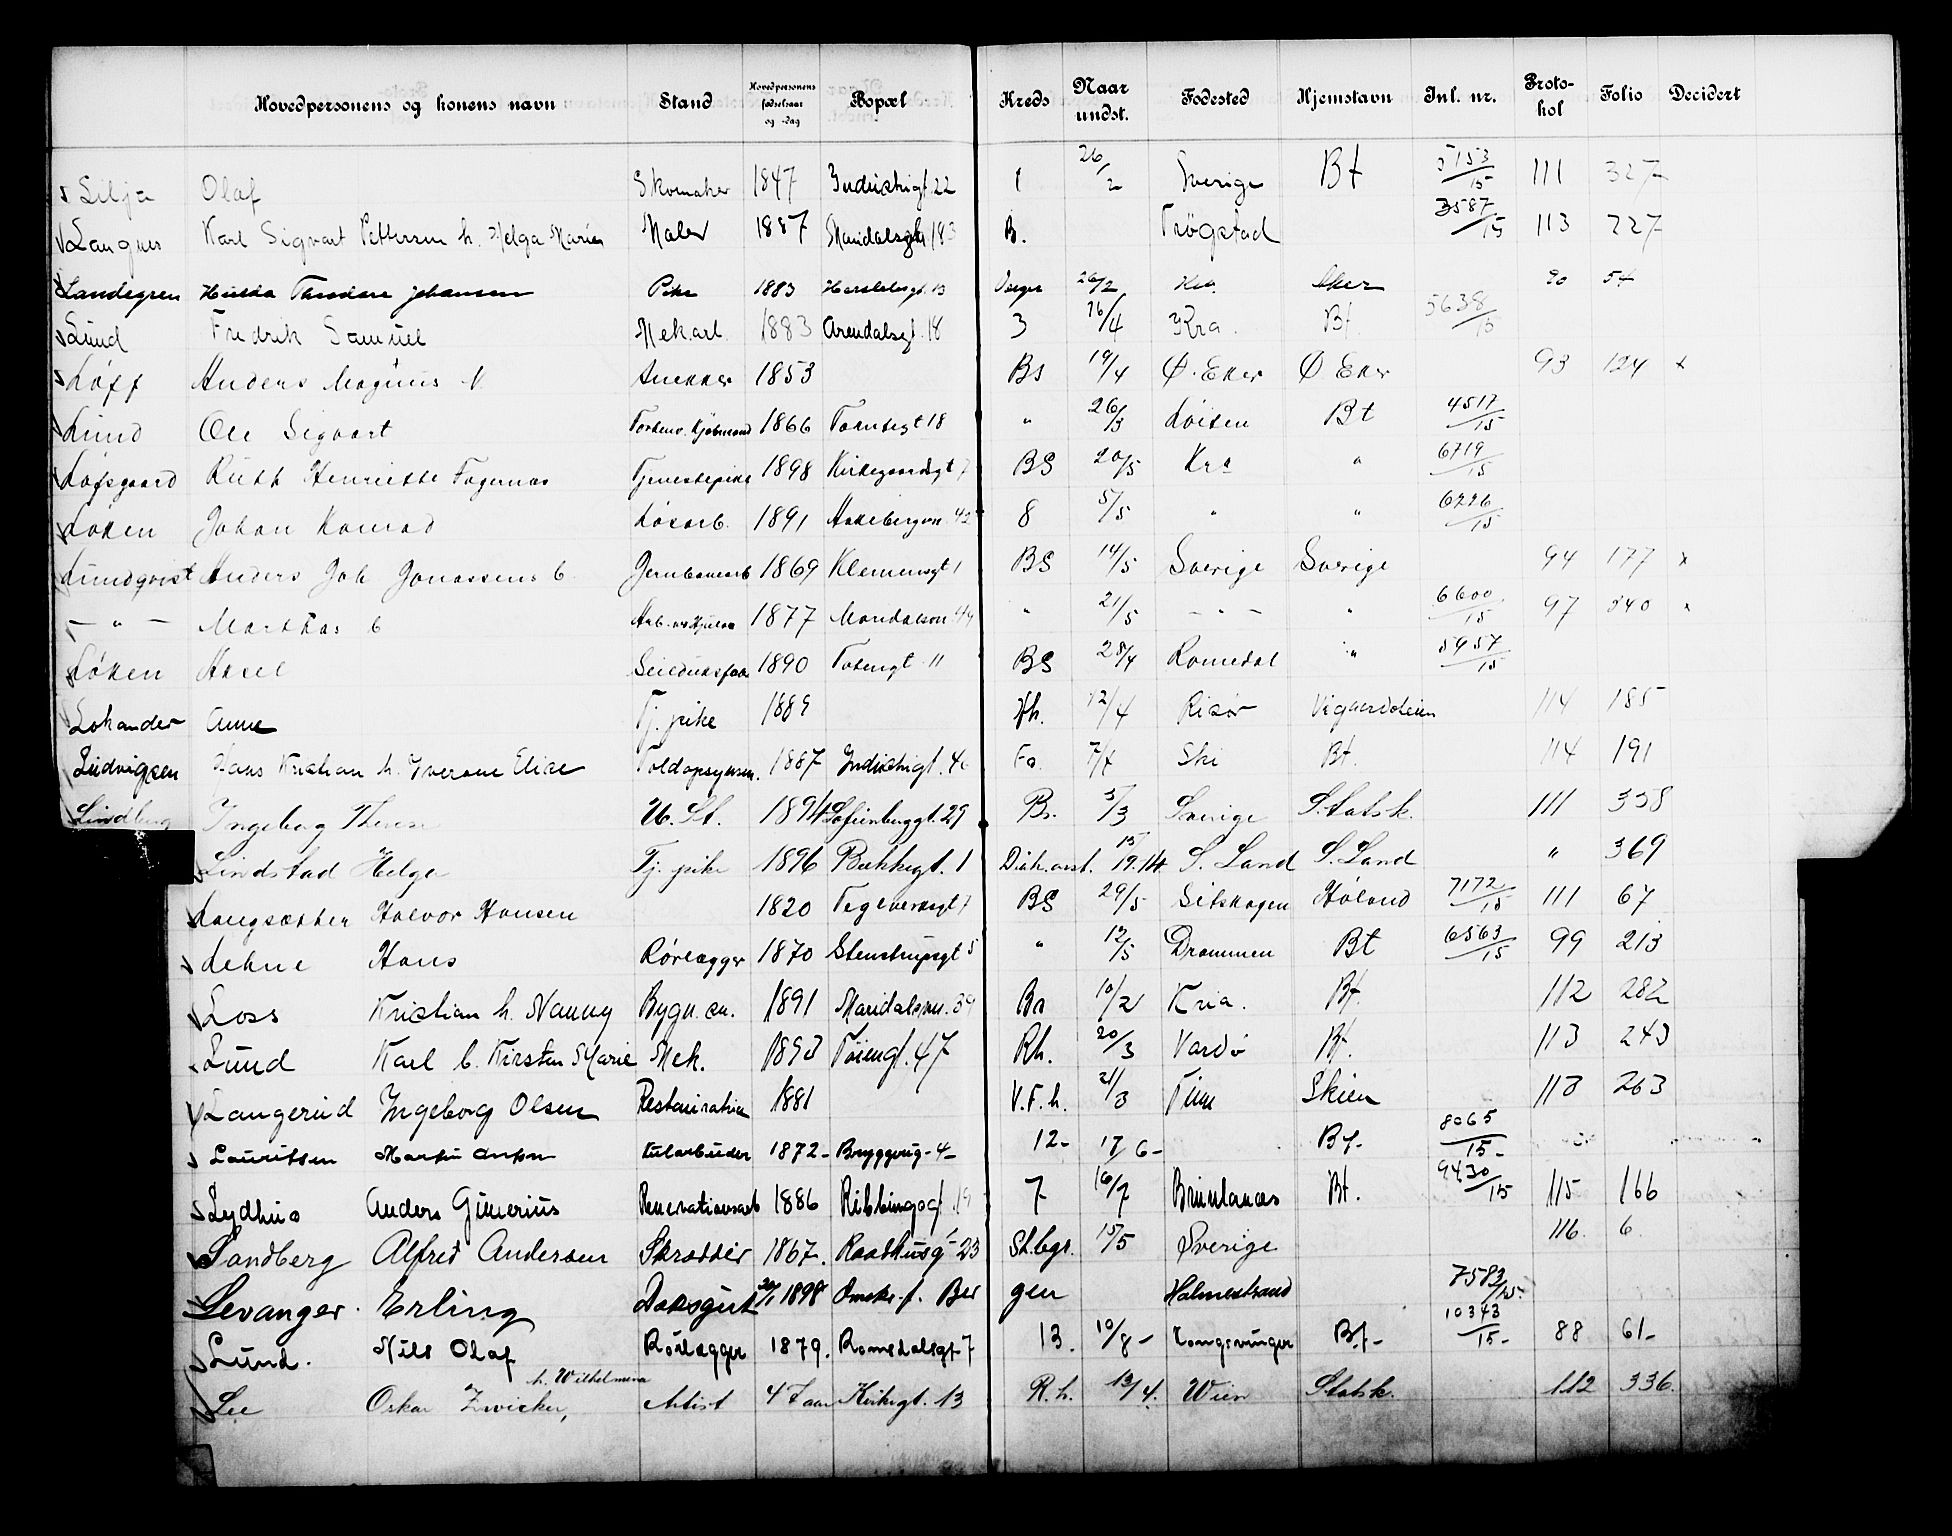 Hovedpersonens og konens navn Stand Hovedpersonens fødselsaar og -dag Bopæl Kreds Naar undst. Fødested Hjemstavn Inl. nr. Protokol Folio Decidert
Lilja Olaf Skomaker 1847 Industrigt. 22 1 26/2 Sverige Bt 5153/15 111 327
Langnes Karl Sigvart Pettersen h. Helga Marie Maler 1887 Maridalsgt 183 B. Trøgstad 3587/15 113 227
Landegren Hulda Theodora Johansen Pike 1883 13 26/2 Kra. Aker 90 54
Lund Fredrik Samuel Mek.arb. 1883 Arendalsgt. 18 3 26/4 Kra. Bt. 5638/15
Løff Anders Magnus N Snekker 1853 BS 19/4 Ø. Eker Ø Eker 93 124 x
Lund Ole Sigvart 1866 Tomtegt 18 " 26/3 Løiten Bt 4517/15
Løfsgaard Ruth Henriette Fagernas Tjenestepike 1898 Kirkegaardsgt 7 BS 20/5 Kra " 6719/15
Løken Johan Konrad Løsarb. 1891 42 8 5/5 " " 6226/15
Lundqvist Anders Joh Jonassens b Jernbanearb 1869 Klemmsgt 1 BS 14/5 Sverige Sverige 94 177 x
- " - Marthas b 1877 44 " 21/5 - " - " 6600/15 97 340 x
Løken Aksel 1890 Totengt 11 BS 28/4 Romedal " 5957/15
Lokander Anna Tj. pike 1889 Vh. 12/4 Risør 114 185
Ludvigsen Hans Kristian h. Iverne Elise Toldopsynsm. 1887 Industrigt. 46 Fa. 7/4 Ski Bt. 114 191
Lindberg Ingeborg Therese U. St. 1894 Sofienberggt. 29 Br. 5/3 Sverige Statsk. 111 338
Lindstad Helga Tj. pike 1896 Bakkegt. 1 Diak.anst. 15/12.14. S. Land S. Land " 369
Langsætter Halvor Hansen 1820 Teglverksgt 7 BS 29/5 Setskogen Høland 7172/15 111 67
Lehne Hans Rørlægger 1870 Stenstrupsgt 5 " 12/5 Drammen Bt 6563/15 99 213
Loss Kristian h. Nanny Bygn. sn. 1891 Maridalsvn. 39 Bs 10/2 Kria. Bt. 112 282
Lund Karl h. Kirsten Marie Mek. 1893 Tøiengt. 47 Rh. 20/3 Vardø Bt. 113 243
Langerud Ingeborg Olsen 1881 V.F.h. 21/3 Tinn Skien 113 263
Lauritsen Martin 1872- Bryggerig-4- 12- 17/6- Bt- 8065/15-
Lydhus Anders Gunerius Renovationsarb 1886 Ribbingsgt. 7 16/7 Brunlanæs Bt. 9430/15 115 166
Landberg Alfred Andersen Skrædder 1867. Raadhusgt 23 St.legs. 15/5 Sverige 116. 6.
Levanger. Erling Dæksgut 1898 Ber gen Holmestrand 7583/15.
Lund. Nils Olaf Rørlægger 1879. Romsdalsgt-7 13. 10/8- Kongsvinger Bt- 10343/15- 88 61-
Lee Oskar Zwicker, h. Wilhelmina Artist 47 aar Kirkegt. 13 R.h. 13/4. Wien Statsk. 112 336.